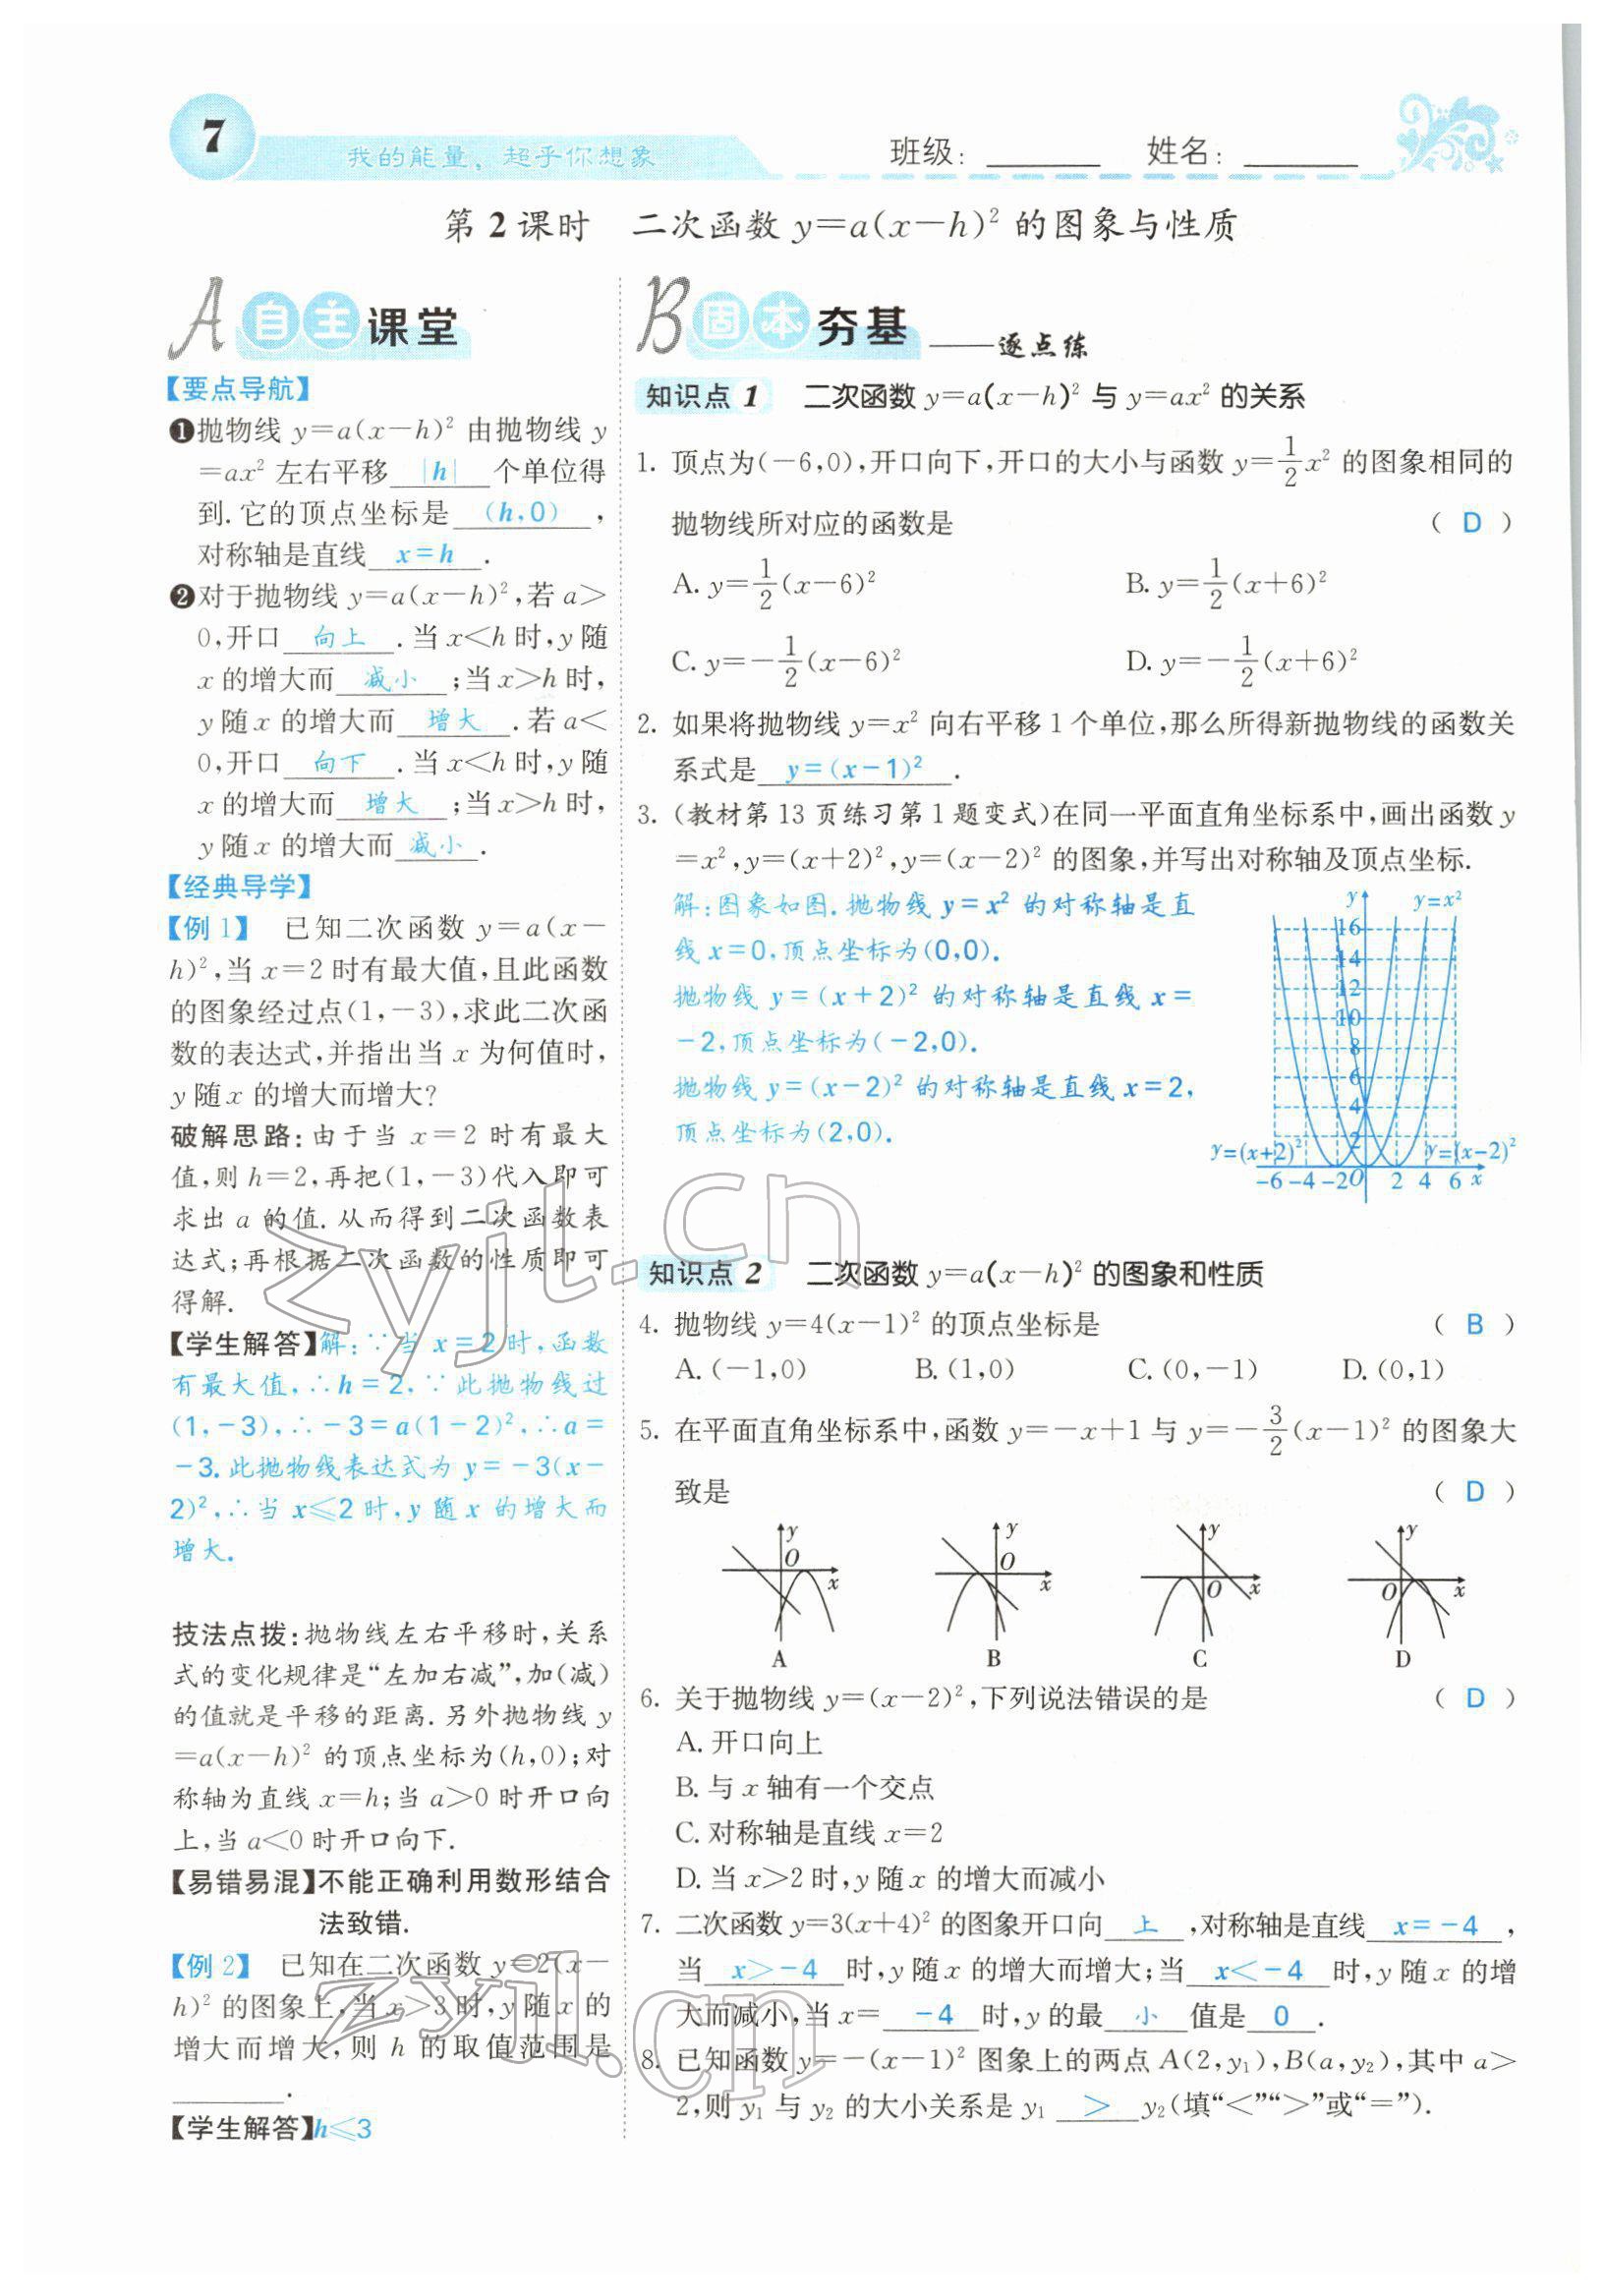 7
我的能量，超乎你想象
班级：
姓名：
第2课时　二次函数 y=a(x-h)² 的图象与性质
A 自主课堂
【要点导航】
❶抛物线 y=a(x-h)² 由抛物线 y
=ax² 左右平移 |h| 个单位得
到. 它的顶点坐标是 (h,0) ,
对称轴是直线 x=h .
❷对于抛物线 y=a(x-h)²,若 a>
0,开口 向上 .当 x<h 时,y 随
x 的增大而 减小 ;当 x>h 时,
y 随 x 的增大而 增大 .若 a<
0,开口 向下 .当 x<h 时,y 随
x 的增大而 增大 ;当 x>h 时,
y 随 x 的增大而 减小 .
【经典导学】
【例1】 已知二次函数 y=a(x-
h)²,当 x=2 时有最大值,且此函数
的图象经过点(1,-3),求此二次函
数的表达式,并指出当 x 为何值时,
y 随 x 的增大而增大?
破解思路:由于当 x=2 时有最大
值,则 h=2,再把(1,-3)代入即可
求出 a 的值. 从而得到二次函数表
达式;再根据二次函数的性质即可
得解.
【学生解答】解:∵当 x=2 时,函数
有最大值,∴h=2,∵此抛物线过
(1,-3),∴-3=a(1-2)²,∴a=
-3.此抛物线表达式为 y=-3(x-
2)²,∴当 x≤2 时,y 随 x 的增大而
增大.
技法点拨:抛物线左右平移时,关系
式的变化规律是“左加右减”,加(减)
的值就是平移的距离. 另外抛物线 y
=a(x-h)² 的顶点坐标为(h,0);对
称轴为直线 x=h;当 a>0 时开口向
上,当 a<0 时开口向下.
【易错易混】不能正确利用数形结合
法致错.
【例2】 已知在二次函数 y=2(x-
h)² 的图象上,当 x>3 时,y 随 x 的
增大而增大,则 h 的取值范围是
.
【学生解答】h≤3
B 固本夯基 ——逐点练
知识点 1　二次函数 y=a(x-h)² 与 y=ax² 的关系
1. 顶点为(-6,0),开口向下,开口的大小与函数 y=1/2 x² 的图象相同的
抛物线所对应的函数是 ( D )
A. y=1/2(x-6)²　B. y=1/2(x+6)²
C. y=-1/2(x-6)²　D. y=-1/2(x+6)²
2. 如果将抛物线 y=x² 向右平移 1 个单位,那么所得新抛物线的函数关
系式是 y=(x-1)² .
3. (教材第 13 页练习第 1 题变式)在同一平面直角坐标系中,画出函数 y
=x²,y=(x+2)²,y=(x-2)² 的图象,并写出对称轴及顶点坐标.
解:图象如图. 抛物线 y=x² 的对称轴是直
线 x=0,顶点坐标为(0,0).
抛物线 y=(x+2)² 的对称轴是直线 x=
-2,顶点坐标为(-2,0).
抛物线 y=(x-2)² 的对称轴是直线 x=2,
顶点坐标为(2,0).
y y=x²
16
14
12
10
8
6
4
2
y=(x+2)² y=(x-2)²
-6 -4 -2 O 2 4 6 x
知识点 2　二次函数 y=a(x-h)² 的图象和性质
4. 抛物线 y=4(x-1)² 的顶点坐标是 ( B )
A. (-1,0)　B. (1,0)　C. (0,-1)　D. (0,1)
5. 在平面直角坐标系中,函数 y=-x+1 与 y=-3/2(x-1)² 的图象大
致是 ( D )
y O x y O x y O x y O x
A B C D
6. 关于抛物线 y=(x-2)²,下列说法错误的是 ( D )
A. 开口向上
B. 与 x 轴有一个交点
C. 对称轴是直线 x=2
D. 当 x>2 时,y 随 x 的增大而减小
7. 二次函数 y=3(x+4)² 的图象开口向 上 ,对称轴是直线 x=-4 ,
当 x>-4 时,y 随 x 的增大而增大;当 x<-4 时,y 随 x 的增
大而减小,当 x= -4 时,y 的最 小 值是 0 .
8. 已知函数 y=-(x-1)² 图象上的两点 A(2,y₁),B(a,y₂),其中 a>
2,则 y₁ 与 y₂ 的大小关系是 y₁ > y₂(填“<”“>”或“=”).
zyjl.cn
zyjl.cn